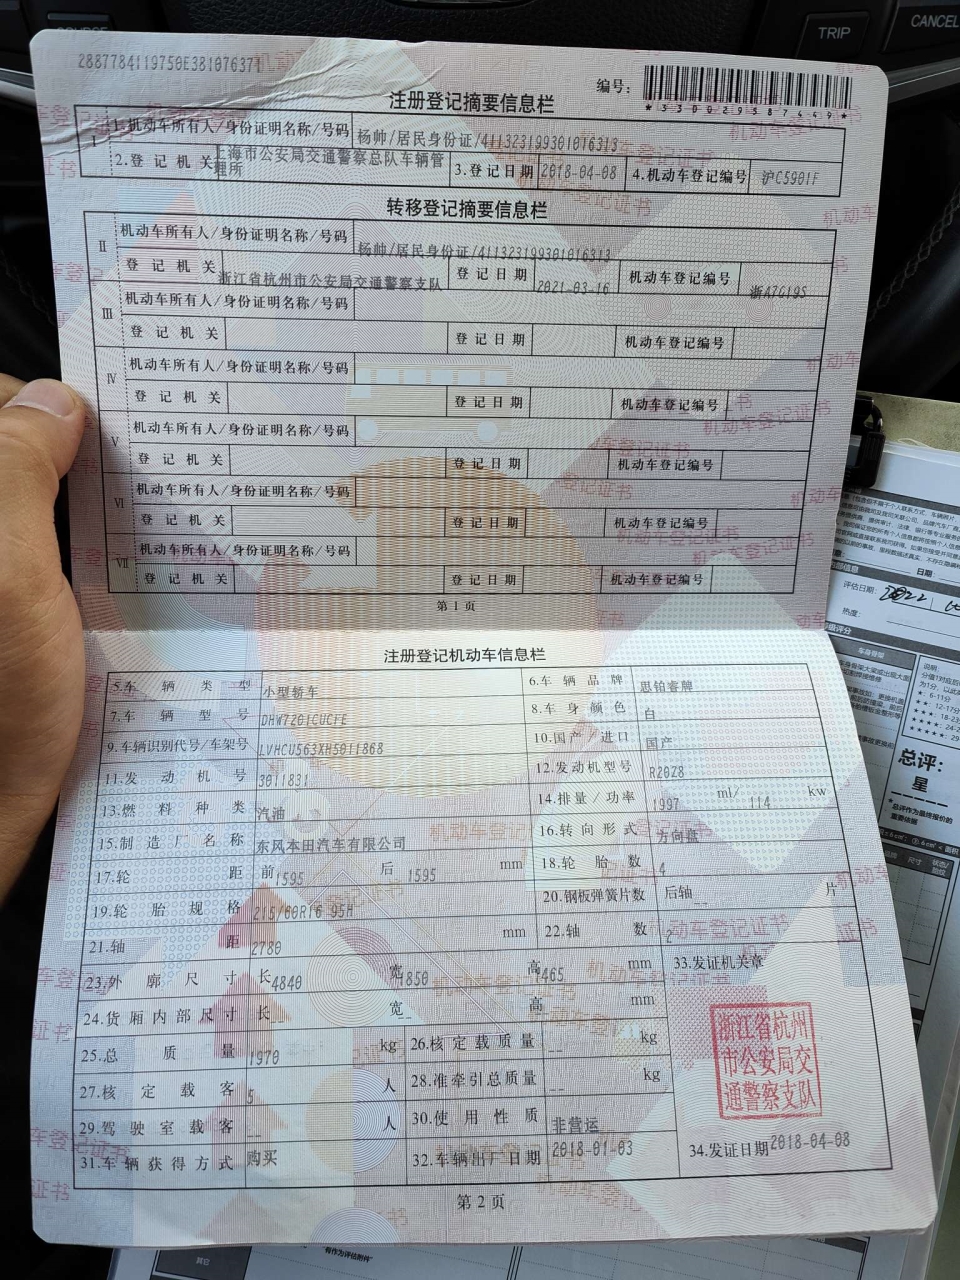 TRIP
CANCEL
2887784119750E38107637
编号：
*330029587449*
注册登记摘要信息栏
I
1.机动车所有人/身份证明名称/号码 杨帅/居民身份证/411323199301016313
2.登记机关 上海市公安局交通警察总队车辆管理所 3.登记日期 2018-04-08 4.机动车登记编号 沪C5901F
转移登记摘要信息栏
II 机动车所有人/身份证明名称/号码 杨帅/居民身份证/411323199301016313
登记机关 浙江省杭州市公安局交通警察支队 登记日期 2021-03-16 机动车登记编号 浙A7G19S
III 机动车所有人/身份证明名称/号码
登记机关 登记日期 机动车登记编号
IV 机动车所有人/身份证明名称/号码
登记机关 登记日期 机动车登记编号
V 机动车所有人/身份证明名称/号码
登记机关 登记日期 机动车登记编号
VI 机动车所有人/身份证明名称/号码
登记机关 登记日期 机动车登记编号
VII 机动车所有人/身份证明名称/号码
登记机关 登记日期 机动车登记编号
第1页
注册登记机动车信息栏
5.车辆类型 小型轿车 6.车辆品牌 思铂睿牌
7.车辆型号 DHW7201CUCFE 8.车身颜色 白
9.车辆识别代号/车架号 LVHCU563XH5011868 10.国产/进口 国产
11.发动机号 3011831 12.发动机型号 R20Z8
13.燃料种类 汽油 14.排量/功率 1997 ml/ 114 kw
15.制造厂名称 东风本田汽车有限公司 16.转向形式 方向盘
17.轮距 前 1595 后 1595 mm 18.轮胎数 4
19.轮胎规格 215/60R16 95H 20.钢板弹簧片数 后轴 -- 片
21.轴距 2780 mm 22.轴数 2
23.外廓尺寸 长 4840 宽 1850 高 1465 mm 33.发证机关章
24.货厢内部尺寸 长 -- 宽 -- 高 mm
25.总质量 1970 kg 26.核定载质量 -- kg
27.核定载客 5 人 28.准牵引总质量 -- kg
29.驾驶室载客 -- 人 30.使用性质 非营运
31.车辆获得方式 购买 32.车辆出厂日期 2018-01-03 34.发证日期 2018-04-08
浙江省杭州
市公安局交
通警察支队
第2页
日期
评估日期:
2022
热度:
车身骨架
说明
总评:
星